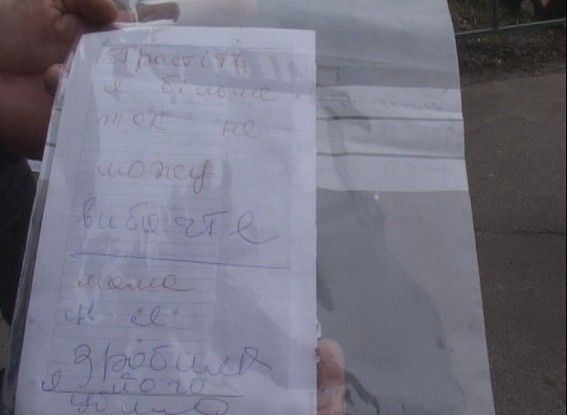 Простіть
я більше
так не
можу
вибачте
мама
це я
зробила
я його
убила